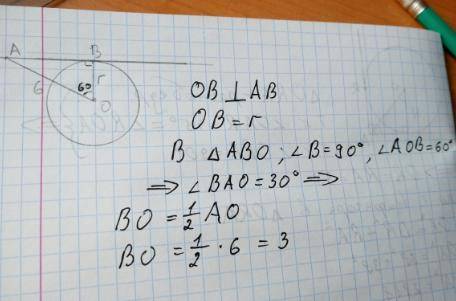 A B
6 60° r
O
OB ⊥ AB
OB = r
В △ABO ; ∠B = 90°, ∠AOB = 60°
⇒ ∠BAO = 30° ⇒
BO = 1/2 AO
BO = 1/2 · 6 = 3